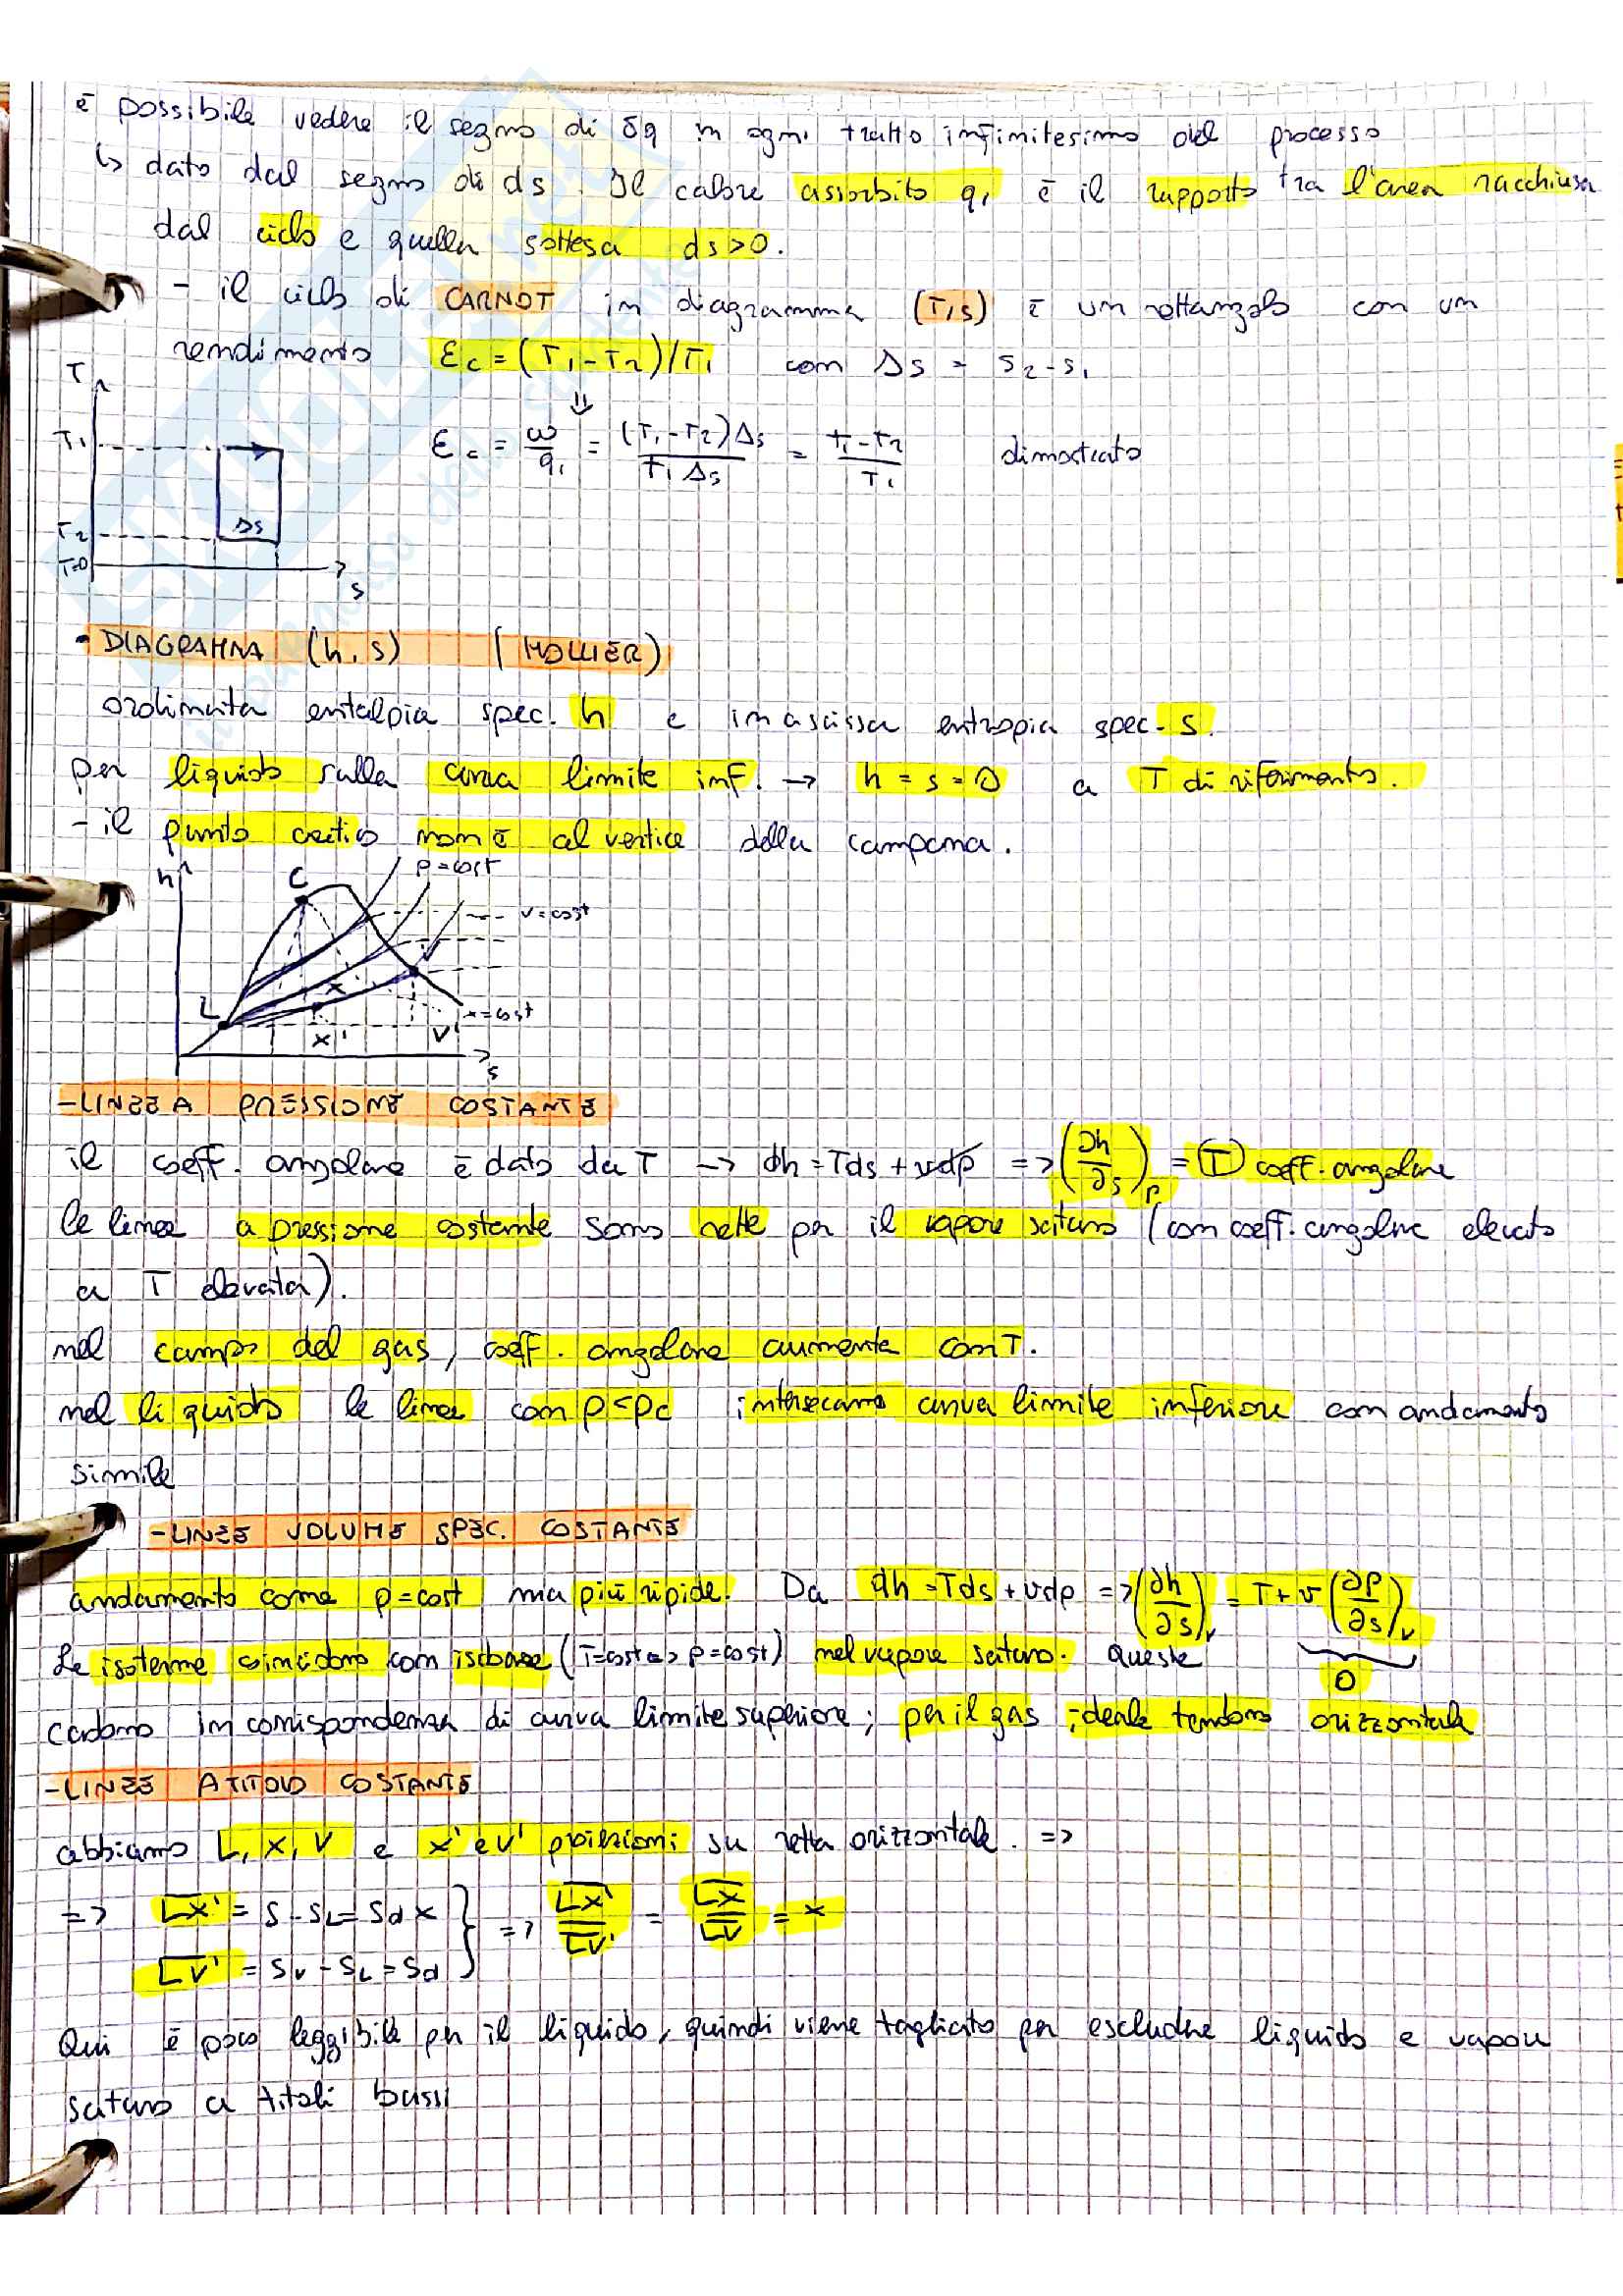 è possibile vedere il segno di δq in ogni tratto infinitesimo del processo
↳ dato dal segno di ds. Il calore assorbito q₁ è il rapporto tra l'area racchiusa
dal ciclo e quella sottesa ds>0.
- il ciclo di CARNOT in diagramma (T,s) è un rettangolo con un
rendimento Ɛc = (T₁-T₂)/T₁ com Δs = s₂-s₁
⇓
Ɛc = w/q₁ = (T₁-T₂)Δs / T₁Δs = T₁-T₂ / T₁ dimostrato
T
T₁
T₂
Δs
T=0
s
• DIAGRAMMA (h,s) (MOLLIER)
ordinata entalpia spec. h e in ascissa entropia spec. s.
per liquido sulla curva limite inf. → h = s = 0 a T di riferimento.
- il punto critico non è al vertice della campana.
h
C
p=cost
v=cost
L
X
V
x=cost
X'
V'
s
-LINEE A PRESSIONE COSTANTE
il coeff. angolare è dato da T → dh = Tds + vdp => (∂h/∂s)p = T coeff. angolare
le linee a pressione costante sono rette per il vapore saturo (con coeff. angolare elevato
a T elevata).
nel campo del gas, coeff. angolare aumenta con T.
nel liquido le linee con p<pc intersecano curva limite inferiore con andamento
simile
-LINEE VOLUME SPEC. COSTANTE
andamento come p=cost ma più ripide. Da dh = Tds + vdp => (∂h/∂s)v = T + v(∂p/∂s)v
Le isoterme coincidono con isobare (T=cost => p=cost) nel vapore saturo. Queste
0
cadono in corrispondenza di curva limite superiore; per il gas ideale tendono orizzontale
-LINEE A TITOLO COSTANTE
abbiamo L, X, V e X' e V' proiezioni su retta orizzontale. =>
=> LX' = s - sL = sd x } => LX'/LV' = LX/LV = x
LV' = sv - sL = sd
Qui è poco leggibile per il liquido, quindi viene tagliato per escludere liquido e vapore
saturo a titoli bassi